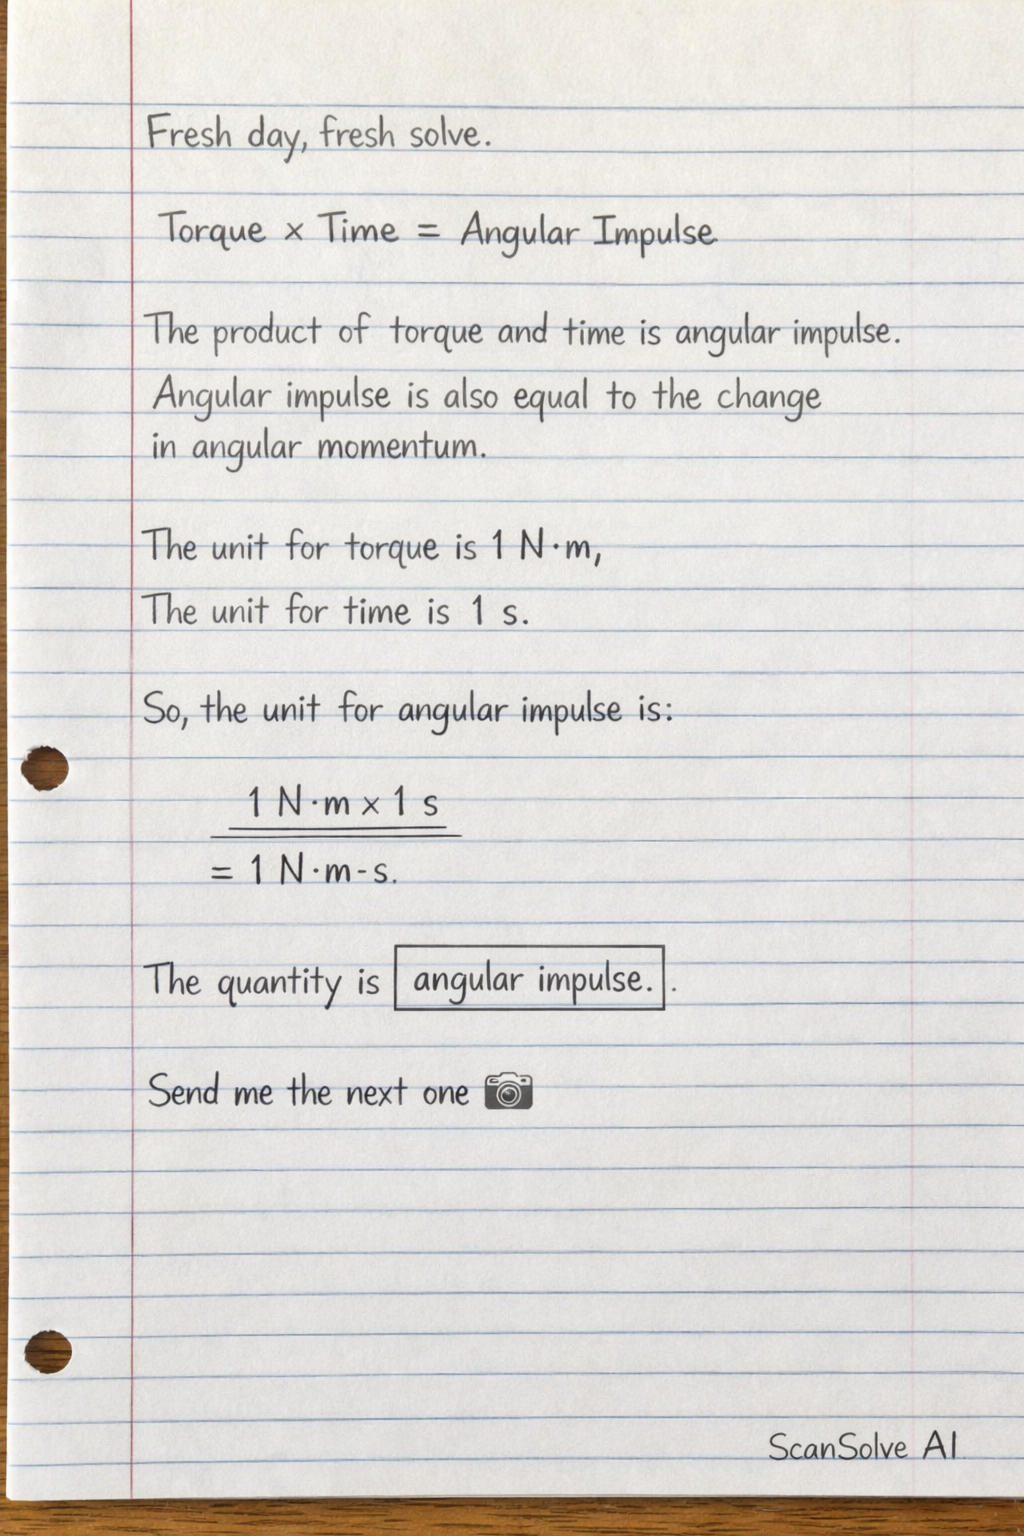 Fresh day, fresh solve.
Torque × Time = Angular Impulse
The product of torque and time is angular impulse.
Angular impulse is also equal to the change
in angular momentum.
The unit for torque is 1 N·m,
The unit for time is 1 s.
So, the unit for angular impulse is:
1 N·m × 1 s
= 1 N·m-s.
The quantity is angular impulse. .
Send me the next one 📷
ScanSolve AI